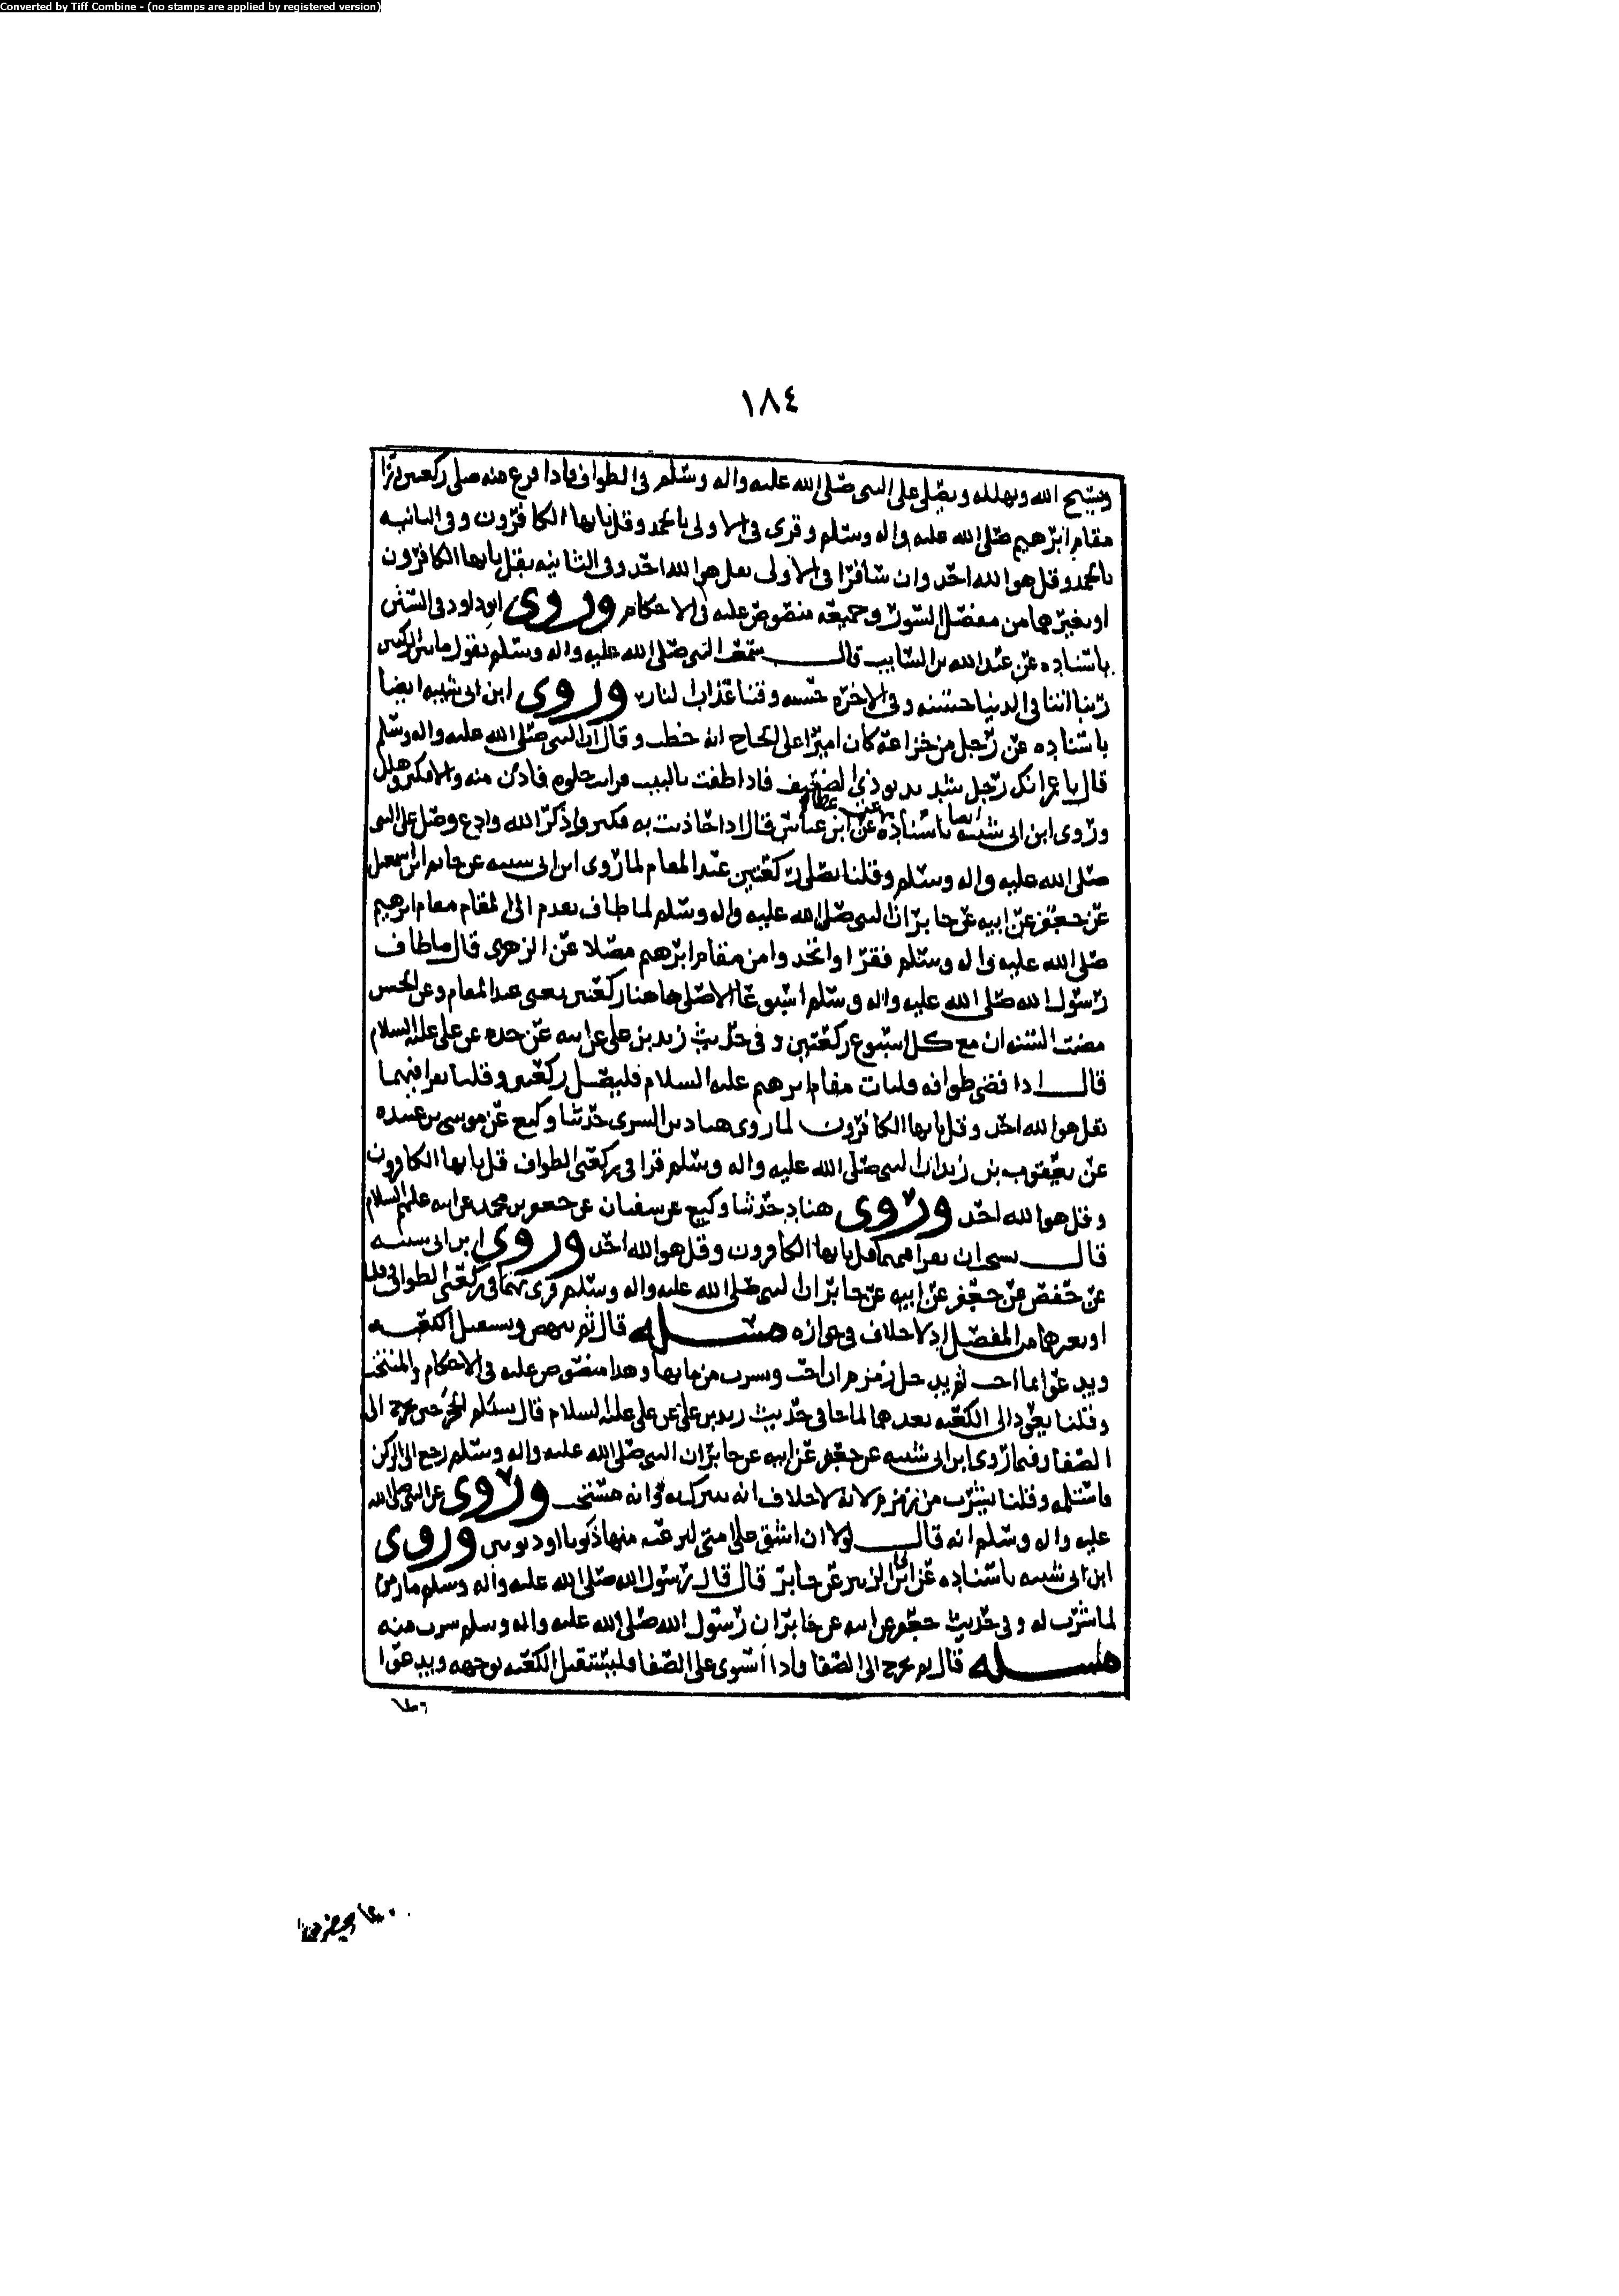 Converted by Tiff Combine - (no stamps are applied by registered version)
١٨٤
ويسبح الله ويهلله ويصلي على النبي صلى الله عليه واله وسلم في الطواف فاذا فرغ منه صلى ركعتين ورا
مقام ابرهيم صلى الله عليه واله وسلم وقرى في الاولى بالحمد وقل يايها الكافرون وفي الثانيه
بالحمد وقل هو الله احد وان شا قرا في الاولى بقل هو الله احد وفي الثانيه بقل يايها الكافرون
او بغيرهما من مفصل السور وجميعه منصوص عليه في الاحكام وروى ابو داود في السنن
باسناده عن عبد الله بن السايب قال سمعت النبي صلى الله عليه واله وسلم يقول ما بين الركنين
ربنا اتنا في الدنيا حسنه وفي الاخره حسنه وقنا عذاب النار وروى ابن ابي شيبه ايضا
باسناده عن رجل من خزاعة كان اميرا على الحاج انه خطب وقال ان النبي صلى الله عليه واله وسلم
قال يا عمر انك رجل شديد يوذي الضعيف فاذا طفت بالبيت فرايت خلوه فادن منه والا فكبر وهلل
وروى ابن ابي شيبه ايضا باسناده عن عطا عن ابن عباس قال اذا حاذيت به فكبر واذكر الله وادع وصل على النبي
صلى الله عليه واله وسلم وقلنا يصلي ركعتين عند المقام لما روى ابن ابي شيبه عن حاتم ابن اسمعيل
عن جعفر عن ابيه عن جابر ان النبي صلى الله عليه واله وسلم لما طاف تقدم الى المقام مقام ابرهيم
صلى الله عليه واله وسلم فقرا واتخذوا من مقام ابرهيم مصلا عن الزهري قال ما طاف
رسول الله صلى الله عليه واله وسلم اسبوعا الا صلى هاهنا ركعتين يعني عند المقام وعن الحسن
مضت السنه ان مع كل اسبوع ركعتين وفي حديث زيد بن علي عن ابيه عن جده عن علي عليه السلام
قال اذا قضى طوافه فليات مقام ابرهيم عليه السلام فليصل ركعتين وقلنا يقرا فيهما
بقل هو الله احد وقل يايها الكافرون لما روى هناد بن السري حدثنا وكيع عن موسى بن عبيده
عن يعقوب بن زيد ان النبي صلى الله عليه واله وسلم قرا في ركعتي الطواف قل يايها الكافرون
وقل هو الله احد وروى هناد حدثنا وكيع عن سفيان عن جعفر بن محمد عن ابيه عليهم السلام
قال يستحب ان يقرا فيهما قل يايها الكافرون وقل هو الله احد وروى ابن ابي شيبه
عن حفص عن جعفر عن ابيه عن جابر ان النبي صلى الله عليه واله وسلم قرى بهما في ركعتي الطواف وقلنا
او بغيرهما من المفصل اذ لا خلاف في جوازه مسله قال ثم ينهض ويستقبل الكعبه
ويدعوا بما احب ثم يدخل زمزم ان احب ويشرب من مايها وهذا منصوص عليه في الاحكام والمنتخب
وقلنا يعود الى الكعبه بعدهما لما جا في حديث زيد بن علي عن علي عليه السلام قال يستلم الحجر حتى يخرج الى
الصفا وفيما روى ابن ابي شيبه عن جعفر عن ابيه عن جابر ان النبي صلى الله عليه واله وسلم رجع الى الركن
فاستلمه وقلنا يشرب من زمزم لانه لا خلاف انه يتبرك به وانه مستحب وروى عن النبي صلى الله
عليه واله وسلم انه قال لولا ان اشق على امتي لنزعت منها ذنوبا او ذنوبين وروى
ابن ابي شيبه باسناده عن ابي الزبير عن جابر قال قال رسول الله صلى الله عليه واله وسلم ما زمزم
لما شرب له وفي حديث جعفر عن ابيه عن جابر ان رسول الله صلى الله عليه واله وسلم شرب منه
مسله قال ثم يخرج الى الصفا واذا استوى على الصفا فليستقبل الكعبه بوجهه ويدعوا